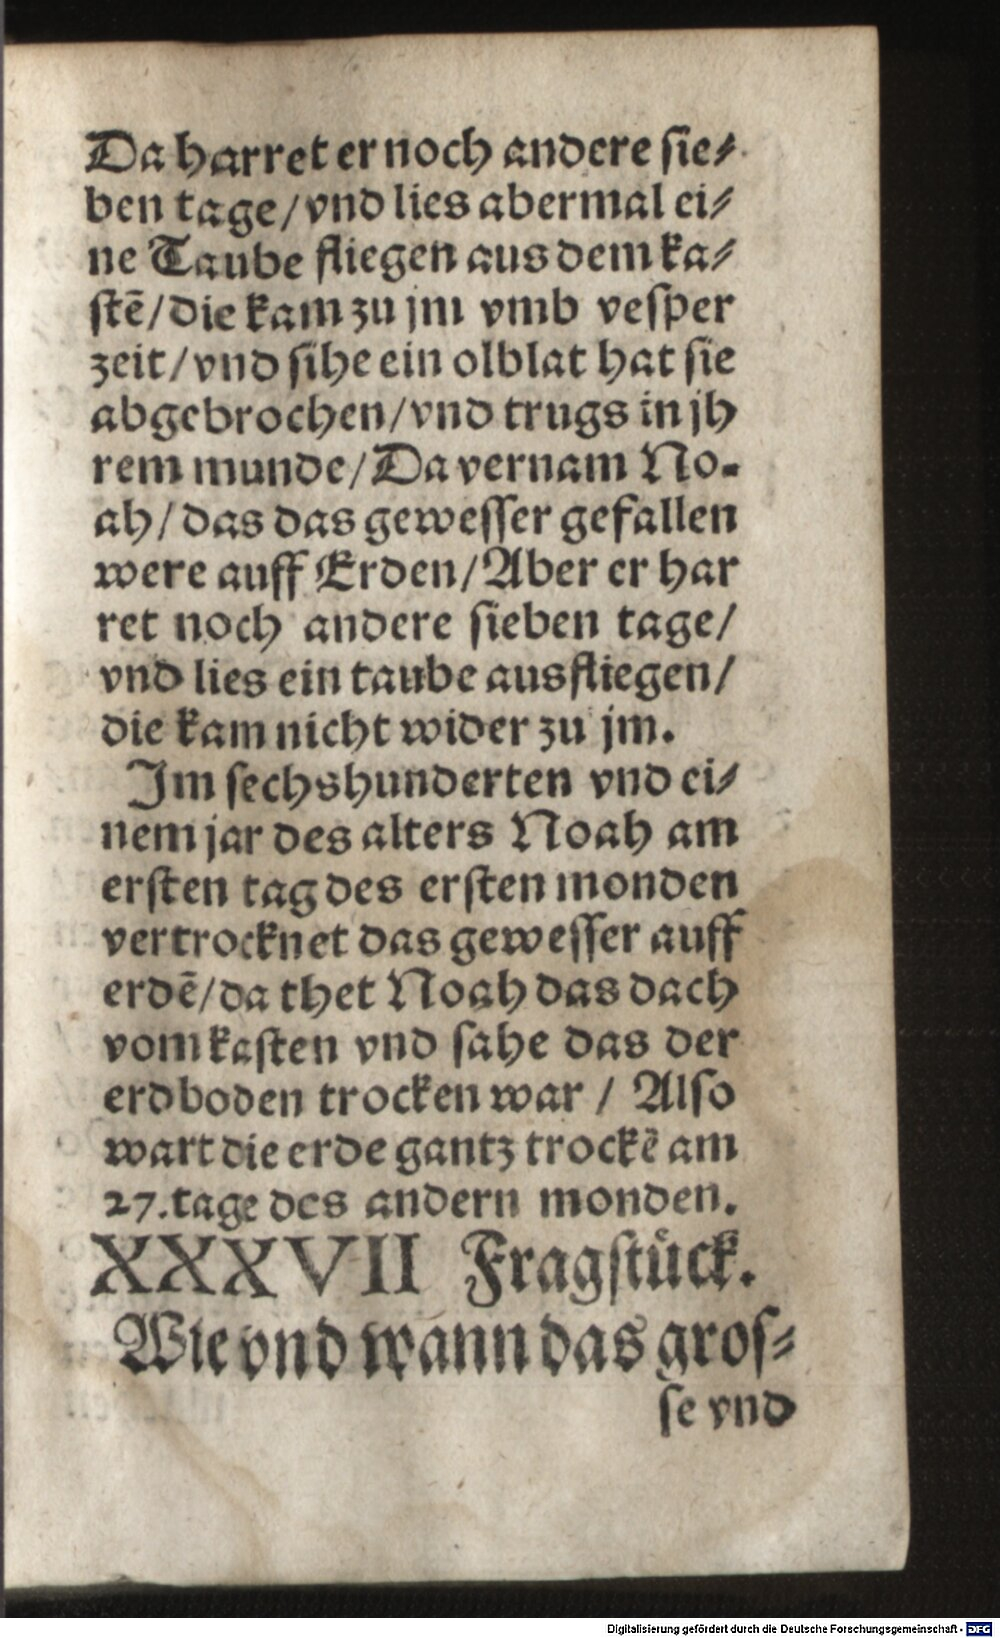 Da harret er noch andere sie⸗
ben tage/vnd lies abermal ei⸗
ne Taube fliegen aus dem ka⸗
stē/die kam zu jm vmb vesper
zeit/vnd sihe ein olblat hat sie
abgebrochen/vnd trugs in jh
rem munde/Da vernam No⸗
ah/das das gewesser gefallen
were auff Erden/Aber er har
ret noch andere sieben tage/
vnd lies ein taube ausfliegen/
die kam nicht wider zu jm.
Im sechshunderten vnd ei⸗
nem jar des alters Noah am
ersten tag des ersten monden
vertrocknet das gewesser auff
erdē/da thet Noah das dach
vom kasten vnd sahe das der
erdboden trocken war / Also
wart die erde gantz trockē am
27.tage des andern monden.
XXXVII Fragstück.
Wie vnd wann das gros⸗
se vnd
Digitalisierung gefördert durch die Deutsche Forschungsgemeinschaft - DFG